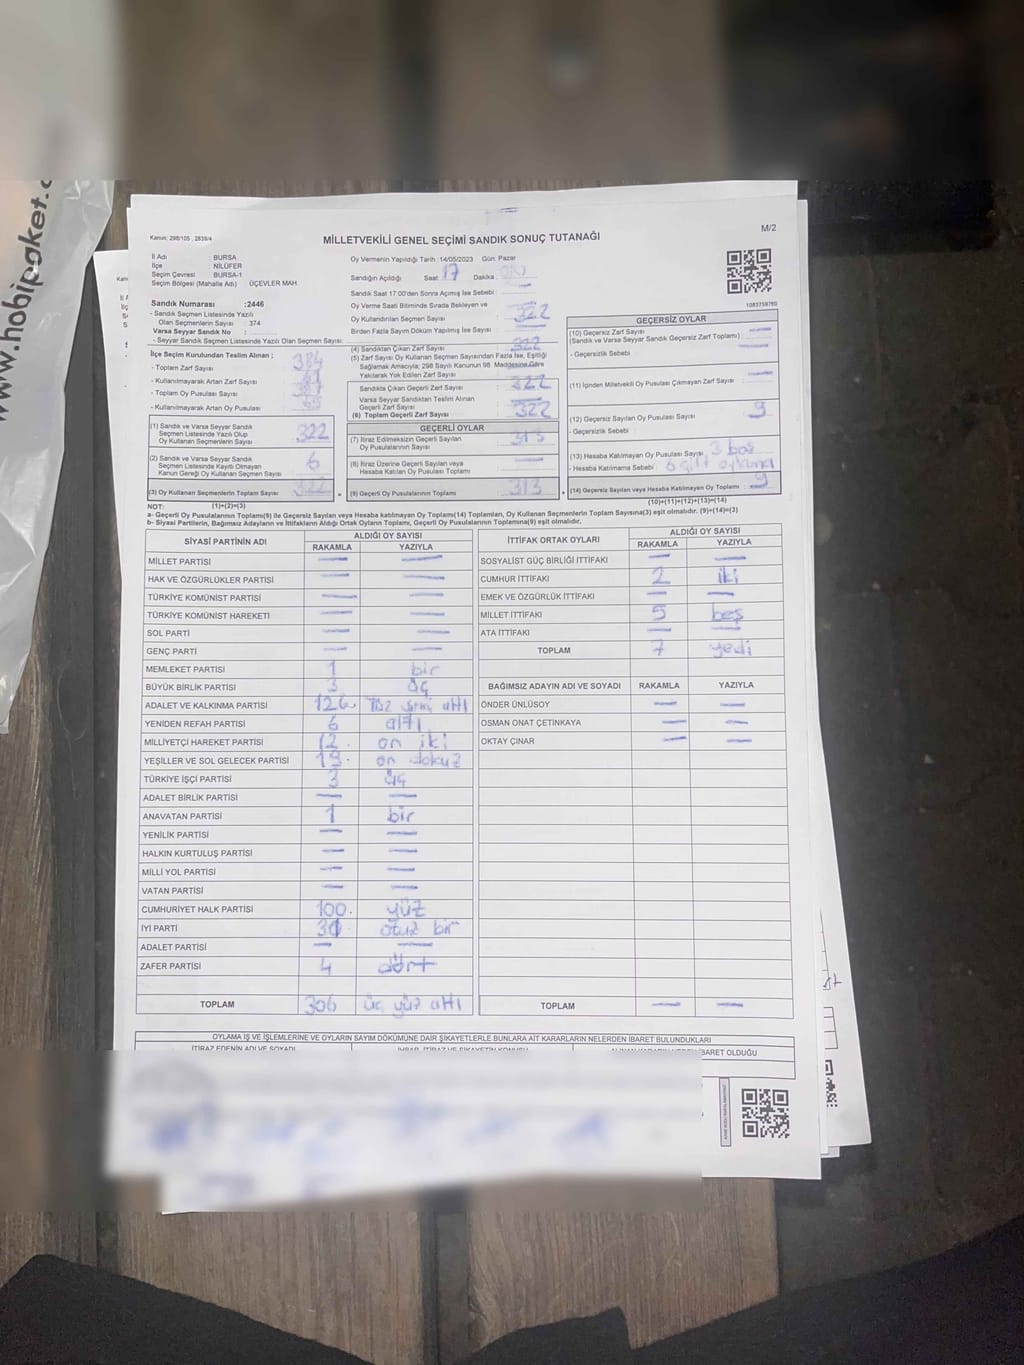 www.hobipaket.c
M/2
Kanun: 298/105 , 2839/4
MİLLETVEKİLİ GENEL SEÇİMİ SANDIK SONUÇ TUTANAĞI
İl Adı : BURSA
İlçe : NİLÜFER
Seçim Çevresi : BURSA-1
Seçim Bölgesi (Mahalle Adı) : ÜÇEVLER MAH.
Sandık Numarası :2446
- Sandık Seçmen Listesinde Yazılı
Olan Seçmenlerin Sayısı : 374
Varsa Seyyar Sandık No :
- Seyyar Sandık Seçmen Listesinde Yazılı Olan Seçmen Sayısı:
Oy Vermenin Yapıldığı Tarih : 14/05/2023 Gün: Pazar
Sandığın Açıldığı Saat : 17 Dakika :
Sandık Saat 17:00'den Sonra Açılmış İse Sebebi :
Oy Verme Saati Bitiminde Sırada Bekleyen ve
Oy Kullandırılan Seçmen Sayısı : 322
Birden Fazla Sayım Döküm Yapılmış İse Sayısı :
1083759760
İlçe Seçim Kurulundan Teslim Alınan ;
- Toplam Zarf Sayısı : 384
- Kullanılmayarak Artan Zarf Sayısı :
- Toplam Oy Pusulası Sayısı :
- Kullanılmayarak Artan Oy Pusulası :
(1) Sandık ve Varsa Seyyar Sandık
Seçmen Listesinde Yazılı Olup
Oy Kullanan Seçmenlerin Sayısı : 322
(2) Sandık ve Varsa Seyyar Sandık
Seçmen Listesinde Kayıtlı Olmayan
Kanun Gereği Oy Kullanan Seçmen Sayısı : 6
(3) Oy Kullanan Seçmenlerin Toplam Sayısı : 322
(1)+(2)=(3)
(4) Sandıktan Çıkan Zarf Sayısı : 322
(5) Zarf Sayısı Oy Kullanan Seçmen Sayısından Fazla İse, Eşitliği
Sağlamak Amacıyla; 298 Sayılı Kanunun 98. Maddesine Göre
Yakılarak Yok Edilen Zarf Sayısı :
Sandıkta Çıkan Geçerli Zarf Sayısı : 322
Varsa Seyyar Sandıktan Teslim Alınan
Geçerli Zarf Sayısı :
(6) Toplam Geçerli Zarf Sayısı : 322
GEÇERLİ OYLAR
(7) İtiraz Edilmeksizin Geçerli Sayılan
Oy Pusulalarının Sayısı : 313
(8) İtiraz Üzerine Geçerli Sayılan veya
Hesaba Katılan Oy Pusulası Sayısı :
(9) Geçerli Oy Pusulalarının Toplamı : 313
GEÇERSİZ OYLAR
(10) Geçersiz Zarf Sayısı
(Sandık ve Varsa Seyyar Sandık Geçersiz Zarf Toplamı) :
- Geçersizlik Sebebi :
(11) İçinden Milletvekili Oy Pusulası Çıkmayan Zarf Sayısı :
(12) Geçersiz Sayılan Oy Pusulası Sayısı : 9
- Geçersizlik Sebebi :
(13) Hesaba Katılmayan Oy Pusulası Sayısı : 3 boş
- Hesaba Katılmama Sebebi : 6 çift
(14) Geçersiz Sayılan veya Hesaba Katılmayan Oy Toplamı : 9
(10)+(11)+(12)+(13)=(14)
NOT:
a- Geçerli Oy Pusulalarının Toplamı(9) ile Geçersiz Sayılan veya Hesaba Katılmayan Oy Toplamı(14) Toplamları, Oy Kullanan Seçmenlerin Toplam Sayısına(3) eşit olmalıdır. (9)+(14)=(3)
b- Siyasi Partilerin, Bağımsız Adayların ve İttifakların Aldığı Ortak Oyların Toplamı, Geçerli Oy Pusulalarının Toplamına(9) eşit olmalıdır.
SİYASİ PARTİNİN ADI ALDIĞI OY SAYISI
RAKAMLA YAZIYLA
MİLLET PARTİSİ
HAK VE ÖZGÜRLÜKLER PARTİSİ
TÜRKİYE KOMÜNİST PARTİSİ
TÜRKİYE KOMÜNİST HAREKETİ
SOL PARTİ
GENÇ PARTİ
MEMLEKET PARTİSİ 1 bir
BÜYÜK BİRLİK PARTİSİ 3 üç
ADALET VE KALKINMA PARTİSİ 126 yüz yirmi altı
YENİDEN REFAH PARTİSİ 6 altı
MİLLİYETÇİ HAREKET PARTİSİ 12 on iki
YEŞİLLER VE SOL GELECEK PARTİSİ 19 on dokuz
TÜRKİYE İŞÇİ PARTİSİ 3 üç
ADALET BİRLİK PARTİSİ
ANAVATAN PARTİSİ 1 bir
YENİLİK PARTİSİ
HALKIN KURTULUŞ PARTİSİ
MİLLİ YOL PARTİSİ
VATAN PARTİSİ
CUMHURİYET HALK PARTİSİ 100 yüz
İYİ PARTİ 31 otuz bir
ADALET PARTİSİ
ZAFER PARTİSİ 4 dört
TOPLAM 306 üç yüz altı
İTTİFAK ORTAK OYLARI ALDIĞI OY SAYISI
RAKAMLA YAZIYLA
SOSYALİST GÜÇ BİRLİĞİ İTTİFAKI
CUMHUR İTTİFAKI 2 iki
EMEK VE ÖZGÜRLÜK İTTİFAKI
MİLLET İTTİFAKI 5 beş
ATA İTTİFAKI
TOPLAM 7 yedi
BAĞIMSIZ ADAYIN ADI VE SOYADI RAKAMLA YAZIYLA
ÖNDER ÜNLÜSOY
OSMAN ONAT ÇETİNKAYA
OKTAY ÇINAR
TOPLAM
OYLAMA İŞ VE İŞLEMLERİNE VE OYLARIN SAYIM DÖKÜMÜNE DAİR ŞİKAYETLERLE BUNLARA AİT KARARLARIN NELERDEN İBARET BULUNDUKLARI
İTİRAZ EDENİN ADI VE SOYADI
İBARET OLDUĞU